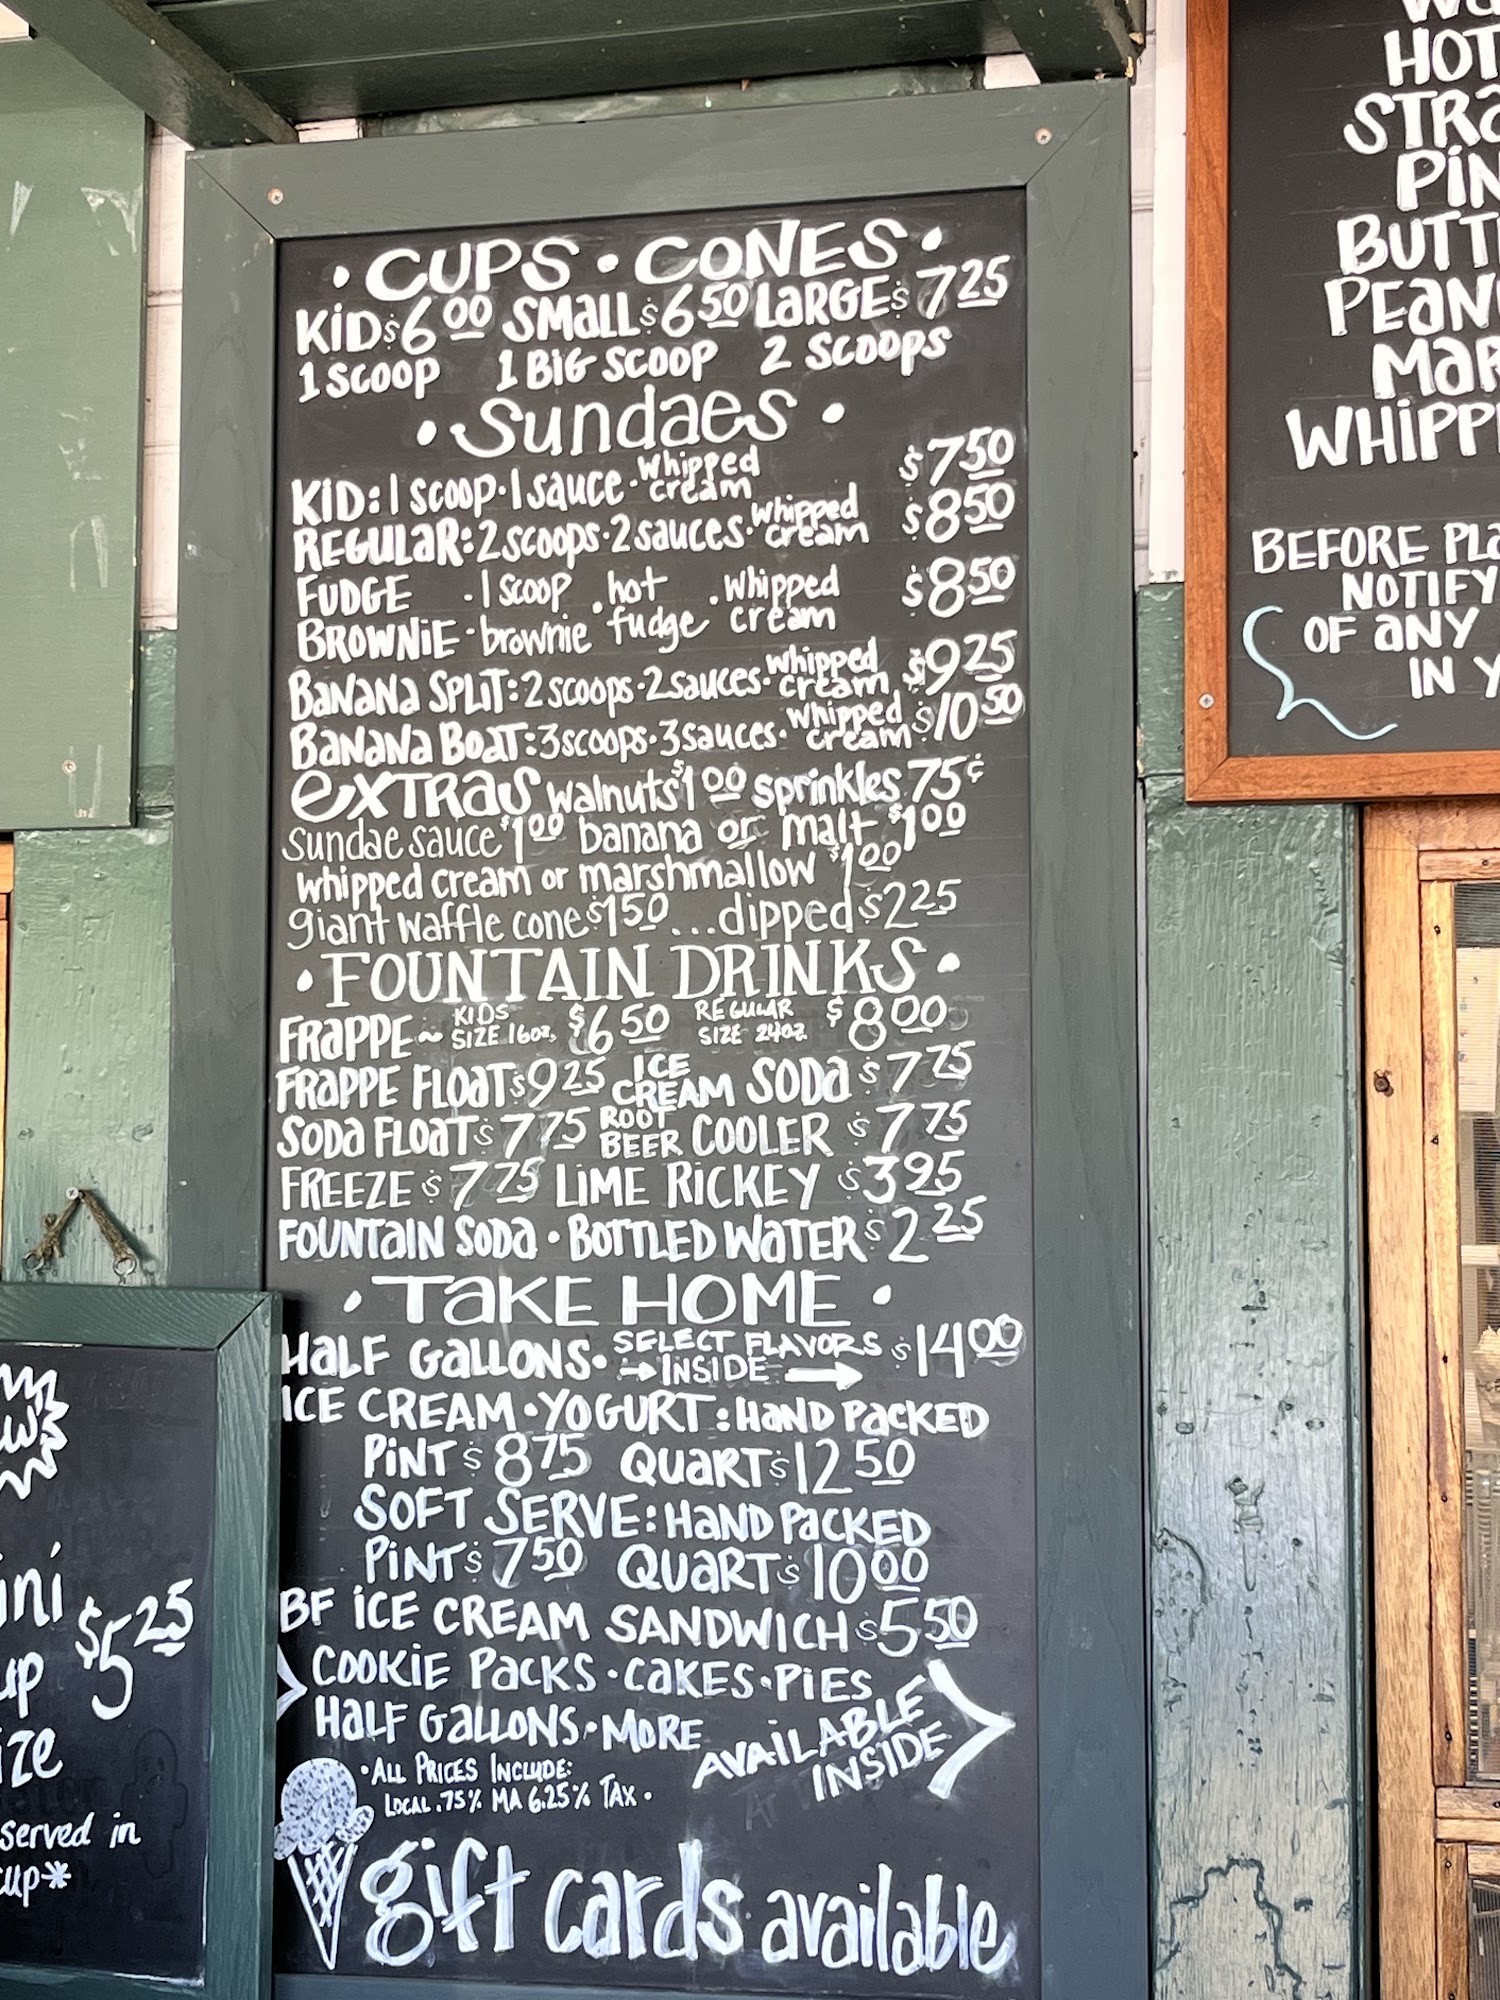 • CUPS • CONES •
KID $6 00 SMALL $6 50 LARGE $7 25
1 SCOOP 1 BIG SCOOP 2 SCOOPS
• Sundaes •
KID: 1 scoop • 1 sauce • whipped cream $7 50
REGULAR: 2 scoops • 2 sauces • whipped cream $8 50
FUDGE BROWNIE • 1 scoop • brownie • hot fudge • whipped cream $8 50
BANANA SPLIT: 2 scoops • 2 sauces • whipped cream $9 25
BANANA BOAT: 3 scoops • 3 sauces • whipped cream $10 50
EXTRAS walnuts $1 00 sprinkles 75¢
sundae sauce $1 00 banana or malt $1 00
whipped cream or marshmallow $1 00
giant waffle cone $1 50 ... dipped $2 25
• FOUNTAIN DRINKS •
FRAPPE ~ KIDS SIZE 16oz. $6 50 REGULAR SIZE 24oz. $8 00
FRAPPE FLOAT $9 25 ICE CREAM SODA $7 75
SODA FLOAT $7 75 ROOT BEER COOLER $7 75
FREEZE $7 75 LIME RICKEY $3 95
FOUNTAIN SODA • BOTTLED WATER $2 25
• TAKE HOME •
HALF GALLONS • SELECT FLAVORS → INSIDE → $14 00
ICE CREAM • YOGURT: HAND PACKED
PINT $8 75 QUART $12 50
SOFT SERVE: HAND PACKED
PINT $7 50 QUART $10 00
BF ICE CREAM SANDWICH $5 50
COOKIE PACKS • CAKES • PIES
HALF GALLONS • MORE
AVAILABLE INSIDE
• ALL PRICES INCLUDE:
LOCAL .75% MA 6.25% TAX •
gift cards available
$5 25
served in
HOT
BEFORE
NOTIFY
OF ANY
IN